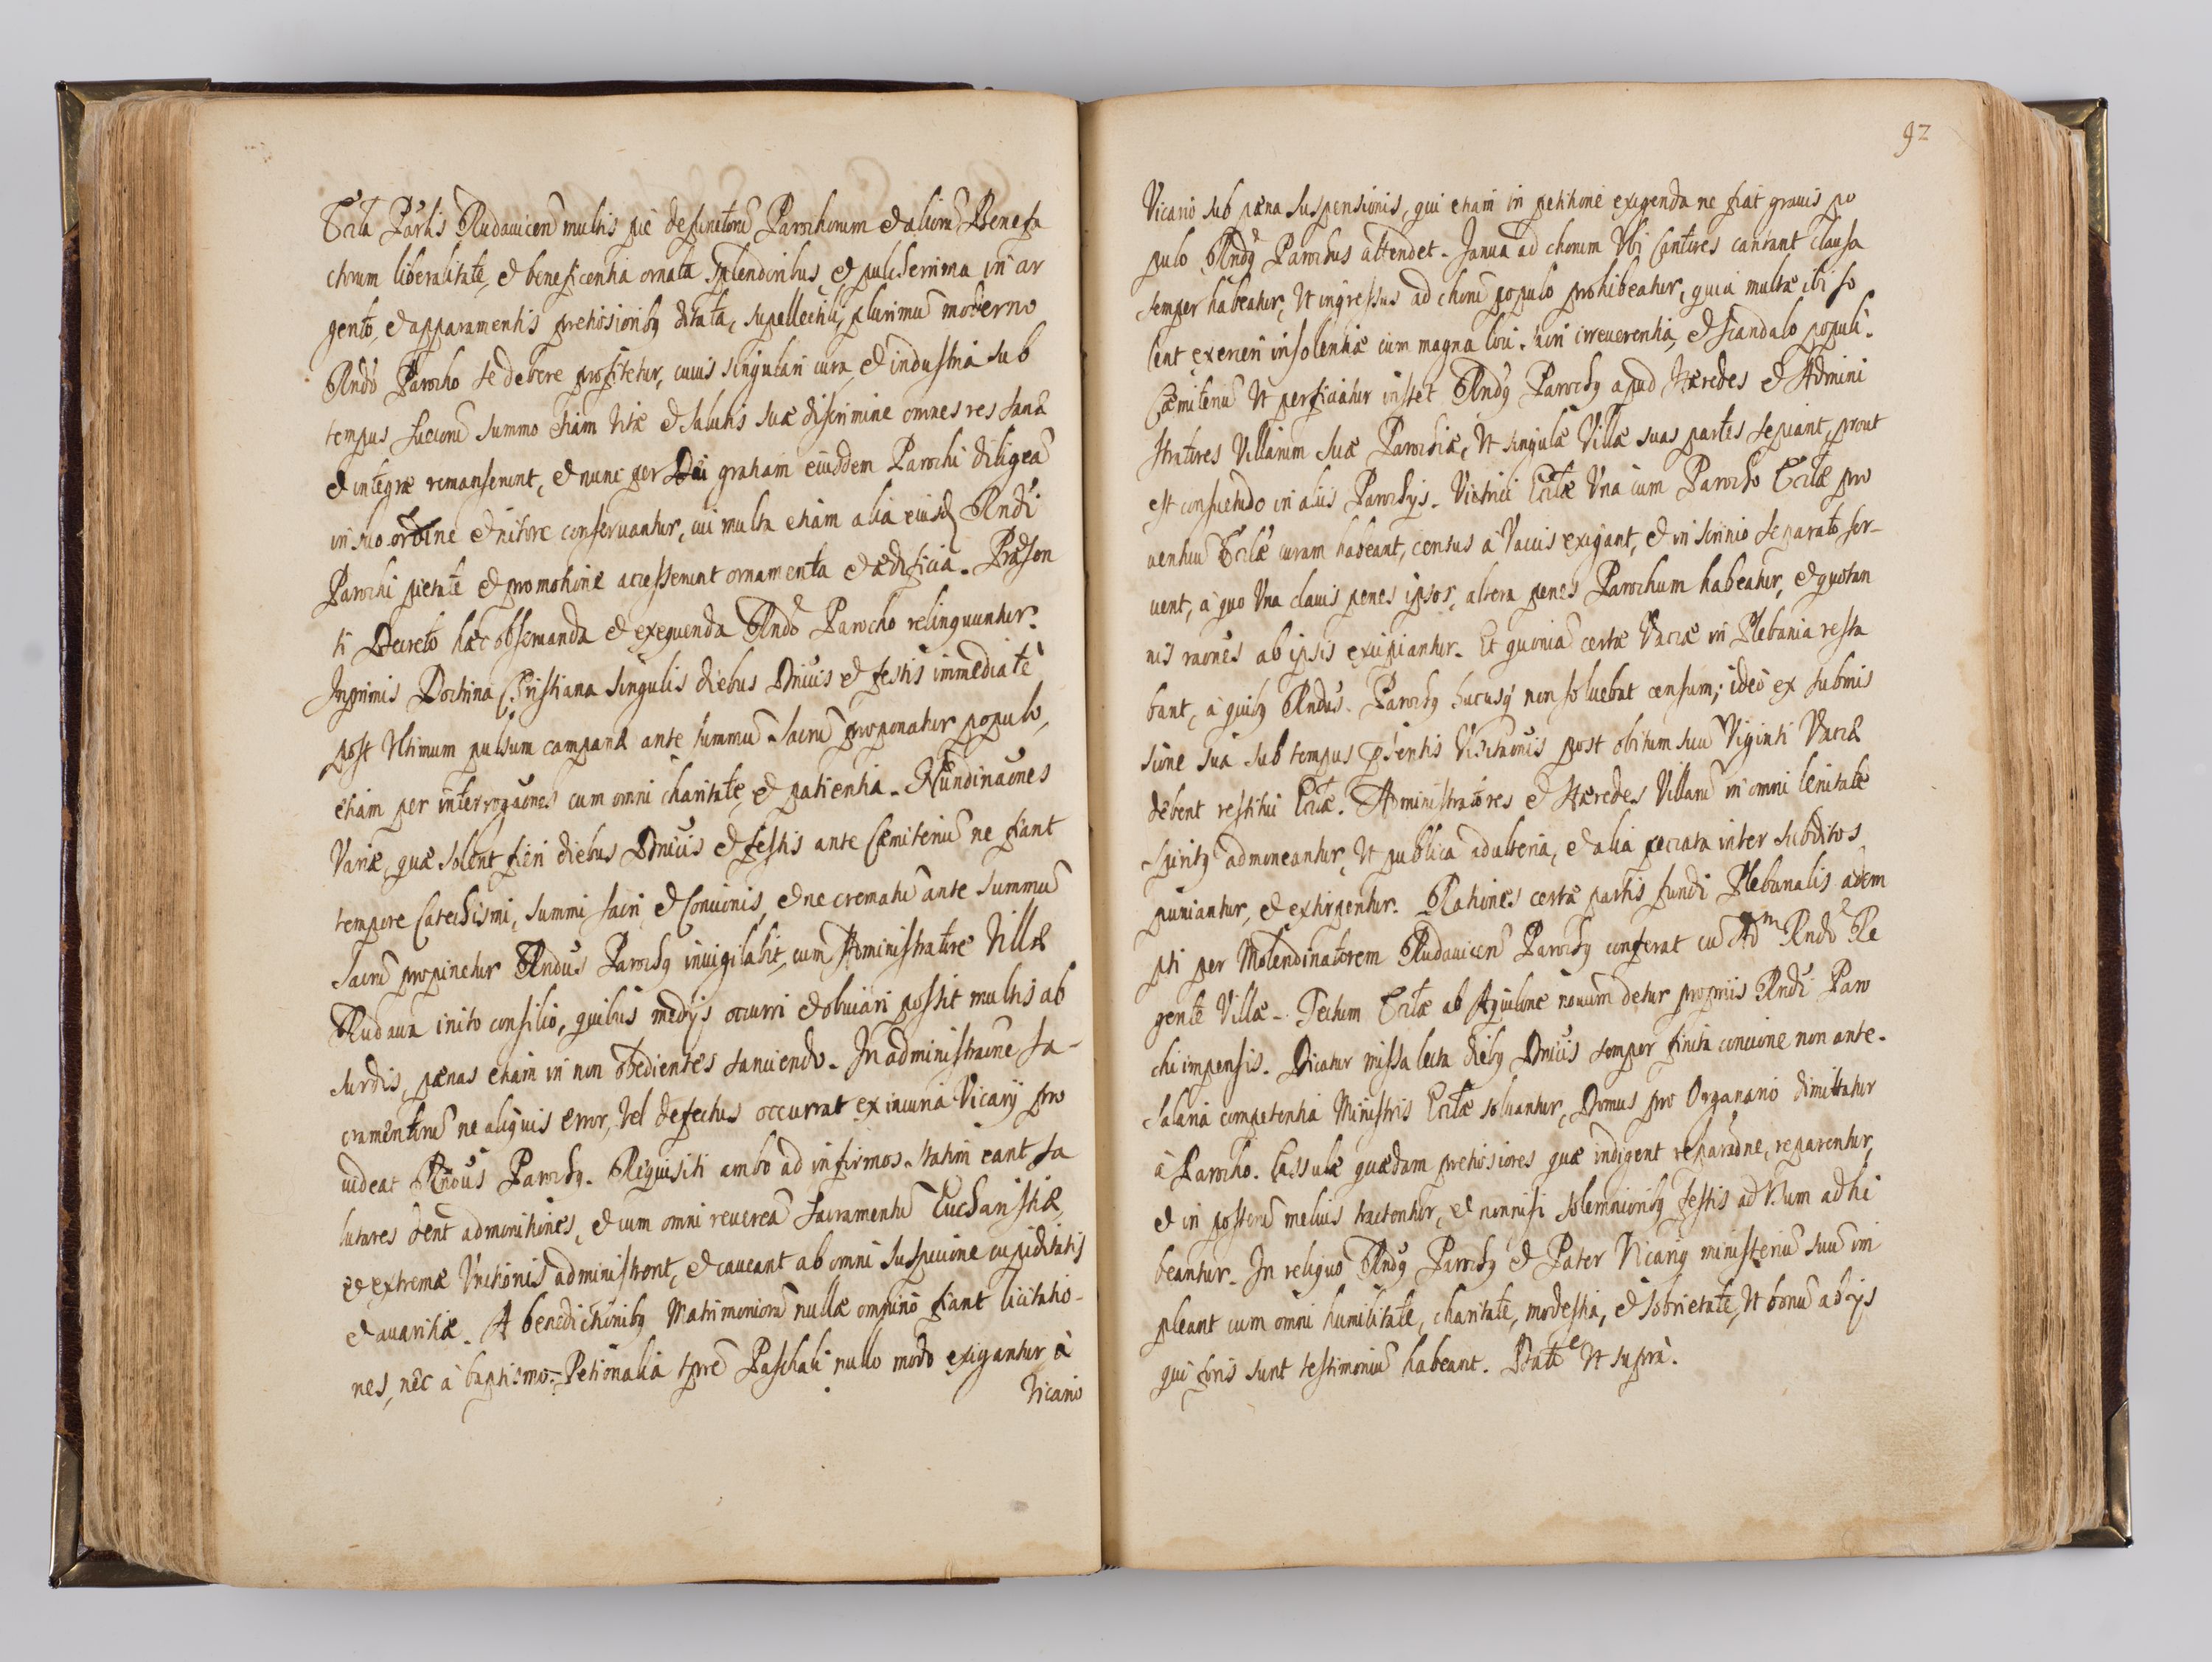 Eccła Parlis Rudauiceñ multis pie defunctorũ Parochorum et aliorũ Benefa
ctorum liberalitate, et beneficentia ornata splendoribus, et pulcherrima in ar
gento, et apparamentis pretiosioribq ditata, supellectili, plurimũ moderno
Rndo Parocho se debere profitetur, cuius singulari cura, et industria sub
tempus Suecorũ summo etiam vitæ et salutis suæ discrimine omnes res sanæ
et integræ remanserunt, et nunc per Dei gratiam eiusdem Parochi diligeã
in suo ordine et nitore conseruantur, cui multa etiam alia eiusd Rndi
Parochi pietate et promotione accesserunt ornamenta et ædificia. Præsen
ti Decreto hæc obseruanda et exequenda Rndo Parocho relinquuntur.
Inprimis Doctrina Christiana singulis diebus Dnicis et festis immediatè
post vltimum pulsum campanæ ante summũ sacrũ proponatur populo,
etiam per interrogaones cum omni charitate, et patientia. Nundinaones
Variæ, quæ solent fieri diebus Dnicis et festis ante Cæmiteriũ ne fiant
tempore Catechismi, summi sacri et Concionis, et ne crematũ ante summũ
sacrũ propinetur Rndus Parochq inuigilabit, cum Administratore Villæ
Rudaua inito consilio, quibus medijs occurri et obuiari possit multis ab
surdis, pænas etiam in non obedientes sanciendo. In administraone sa-
cramentorũ ne aliquis error, vel defectus occurrat ex incuria Vicarij pro
uideat Rndus Parochq. Requisiti ambo ad infirmos statim eant sa
lutares dent admonitiones, et cum omni reuereã sacramentũ Eucharistiæ,
et extremæ Vnctionis administrent, et caueant ab omni suspicione cupiditatis
et auaritiæ. A benedictionibq Matrimoniorũ nullæ omnino fiant licitatio-
nes, nec à baptismo. Petionalia tpre Paschali nullo modo exigantur à
Vicario
92
Vicario sub pæna suspensionis, qui etiam in petitione exigenda ne fiat grauis po
pulo Rndq Parochus attendet. Janua ad chorum Vbi Cantores cantant clausa
semper habeatur, Vt ingressus ad chorũ populo prohibeatur, quia multæ ibi so
lent exerceri insolentiæ cum magna loci sacri irreuerentia, et scandalo populi.
Cæmiteriũ Vt perficiatur instet Rndq Parochq apud Hæredes et Admini
stratores Villarum suæ Parochiæ, Vt singulæ Villæ suas partes sepiant, prout
est consuetudo in alijs Parochijs. Vitrici Ecclæ Vna cum Parocho Ecclæ pro
uentuũ Ecclæ curam habeant, census à Vaccis exigant, et in scrinio separato ser-
uent, à quo Vna clauis penes ipsos, altera penes Parochum habeatur, et quotan
nis raones ab ipsis excipiantur. Et quoniã certæ Vaccæ in Plebania resta
bant, à quibq Rndus Parochq hucusq non soluebat censum; ideò ex submis
sione sua sub tempus psentis Visitaonis post obitum suũ Viginti Vaccæ
debent restitui Ecclæ. Administratores et Hæredes Villarũ in omni lenitate
spiritq admoneantur, Vt publica adulteria, et alia peccata inter subditos
puniantur, et extirpentur. Rationes certæ partis fundi Plebanalis adem
pti per Molendinatorem Rudauiceñ Parochq conferat cũ Adm Rndo Re
gente Villæ. Tectum Ecclæ ab Aquilone nouum detur proprijs Rndi Paro
chi impensis. Dicatur missa lecta diebq Dnicis semper finita concione non ante.
Salaria competentia Ministris Ecclæ soluantur, Domus pro Organario dimittatur
à Parocho. Cassulæ quædam pretiosiores quæ indigent reparaone, reparentur,
et in posterũ melius tractentur, et nonnisi solemnioribq festis ad Vsum adhi
beantur. In reliquo Rndq Parochq et Pater Vicariq ministeriũ suũ im
pleant cum omni humilitate, charitate, modestia, et sobrietate, Vt bonũ ab ijs
qui foris sunt testimoniũ habeant. Datũ Vt suprà.